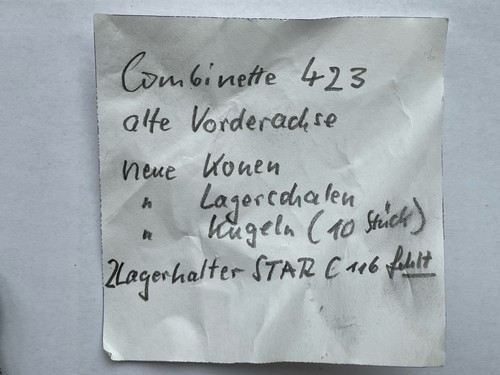 Combinette 423
alte Vorderachse
neue Konen
" Lagerschalen
" Kugeln (10 Stück)
2Lagerhalter STAR C 116 fehlt